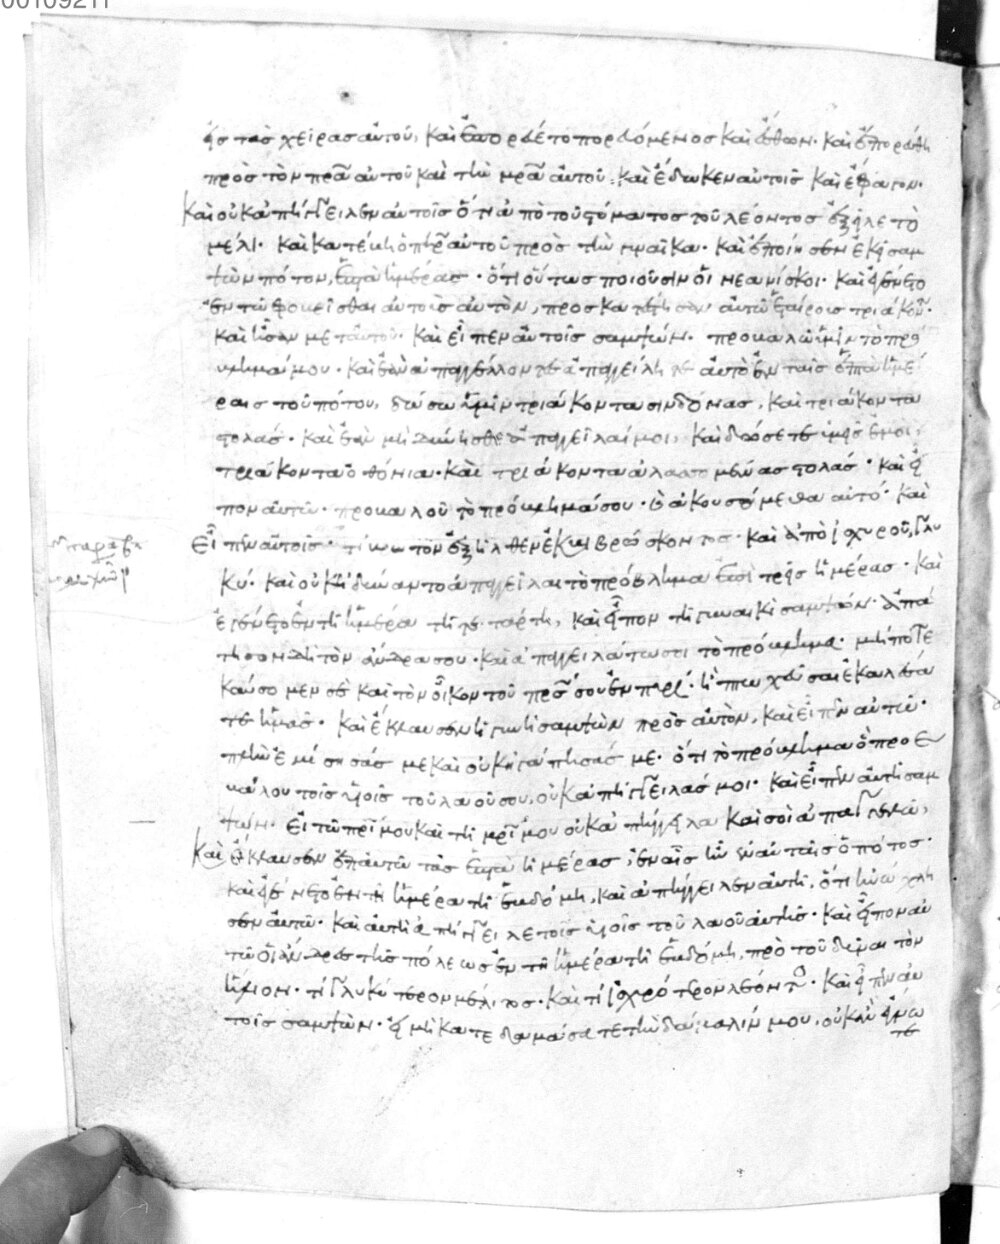 00109211
εἰς τὰς χεῖρας αὐτοῦ, καὶ ἐπορεύετο πορευόμενος καὶ ἔσθων· καὶ ἐπορεύθη
πρὸς τὸν πρα αὐτοῦ καὶ τὴν μρα αὐτοῦ· καὶ ἔδωκεν αὐτοῖς καὶ ἔφαγον·
Καὶ οὐκ ἀπήγγειλεν αὐτοῖς ὅτι ἀπὸ τοῦ στόματος τοῦ λέοντος ἐξῆλε τὸ
μέλι· καὶ κατέβη ὁ πηρ αὐτοῦ πρὸς τὴν γυναῖκα· καὶ ἐποίησεν ἐκεῖ σαμ
ψὼν πότον, ἑπτὰ ἡμέρας· ὅτι οὕτως ποιοῦσιν οἱ νεανίσκοι· καὶ ἐγένετο
ἐν τῷ φοβεῖσθαι αὐτοὺς αὐτὸν, προσκατέστησαν αὐτῷ ἑταίρους τριάκοντ·
καὶ ἦσαν μετ αὐτοῦ· καὶ εἶπεν αὐτοῖς σαμψών· προβαλῶ ὑμῖν τὸ πρό
βλημά μου· καὶ ἐὰν ἀπαγγέλλοντες ἀπαγγείλητε αὐτὸ ἐν ταῖς ἑπτὰ ἡμέ
ραις τοῦ πότου, δώσω ὑμῖν τριάκοντα σινδόνας, καὶ τριάκοντα
στολάς· καὶ ἐὰν μὴ δύνησθε ἀπαγγεῖλαί μοι, καὶ δώσετε ὑμεῖς ἐμοὶ,
τριάκοντα ὀθόνια· καὶ τριάκοντα ἀλασσομένας στολάς· καὶ εἶ
πον αὐτῷ· προβαλοῦ τὸ πρόβλημά σου· καὶ ἀκουσόμεθα αὐτό· καὶ
Εἶπεν αὐτοῖς· τί βρωτὸν ἐξῆλθεν ἐκ βιβρώσκοντος· καὶ ἀπὸ ἰσχυροῦ, γλυ
κύ· καὶ οὐκ ἠδύναντο ἀπαγγεῖλαι τὸ πρόβλημα ἐπὶ τρεῖς ἡμέρας· καὶ
ἐγένετο ἐν τῇ ἡμέρα τῇ τετάρτη, καὶ εἶπον τῇ γυναικὶ σαμψών· ἀπά
τησον δὴ τὸν ἄνδρα σου· καὶ ἀπαγγειλάτω σοι τὸ πρόβλημα· μήποτε
καύσομεν σὲ καὶ τὸν οἶκον τοῦ πρσ σου ἐν πυρί· ἢ πτωχεῦσαι ἐκαλέσα
τε ἡμᾶς· καὶ ἔκλαυσεν ἡ γυνὴ σαμψὼν πρὸς αὐτὸν, καὶ εἶπεν αὐτῷ·
πλὴν ἐμίσησάς με καὶ οὐκ ἠγάπησάς με· ὅτι τὸ πρόβλημα ὃ προε
βάλου τοῖς υἱοῖς τοῦ λαοῦ σου, οὐκ ἀπήγγειλάς μοι· καὶ εἶπεν αὐτῇ σαμ
ψων· εἰ τῷ πρί μου καὶ τῇ μρί μου οὐκ ἀπήγγειλα καὶ σοὶ ἀπαγγελῶ,
Καὶ ἔκλαυσεν ἐπ αὐτῷ τὰς ἑπτὰ ἡμέρας, ἐν αἷς ἦν ἐν αὐταῖς ὁ πότος·
καὶ ἐγένετο ἐν τῇ ἡμέρα τῇ ἑβδόμη, καὶ ἀπήγγειλεν αὐτῇ, ὅτι ἠνώχλη
σεν αὐτῷ· καὶ αὐτὴ ἀπήγγειλε τοῖς υἱοῖς τοῦ λαοῦ αὐτῆς· καὶ εἶπον αὐ
τῷ οἱ ἄνδρες τῆς πόλεως ἐν τῇ ἡμέρα τῇ ἑβδόμη, πρὸ τοῦ δῦναι τὸν
ἥλιον· τί γλυκύτερον μέλιτος· καὶ τί ἰσχυρότερον λέοντος· καὶ εἶπεν αὐ
τοῖς σαμψών· εἰ μὴ κατεδαμάσατε τὴν δάμαλίν μου, οὐκ ἂν εὕρω
τε